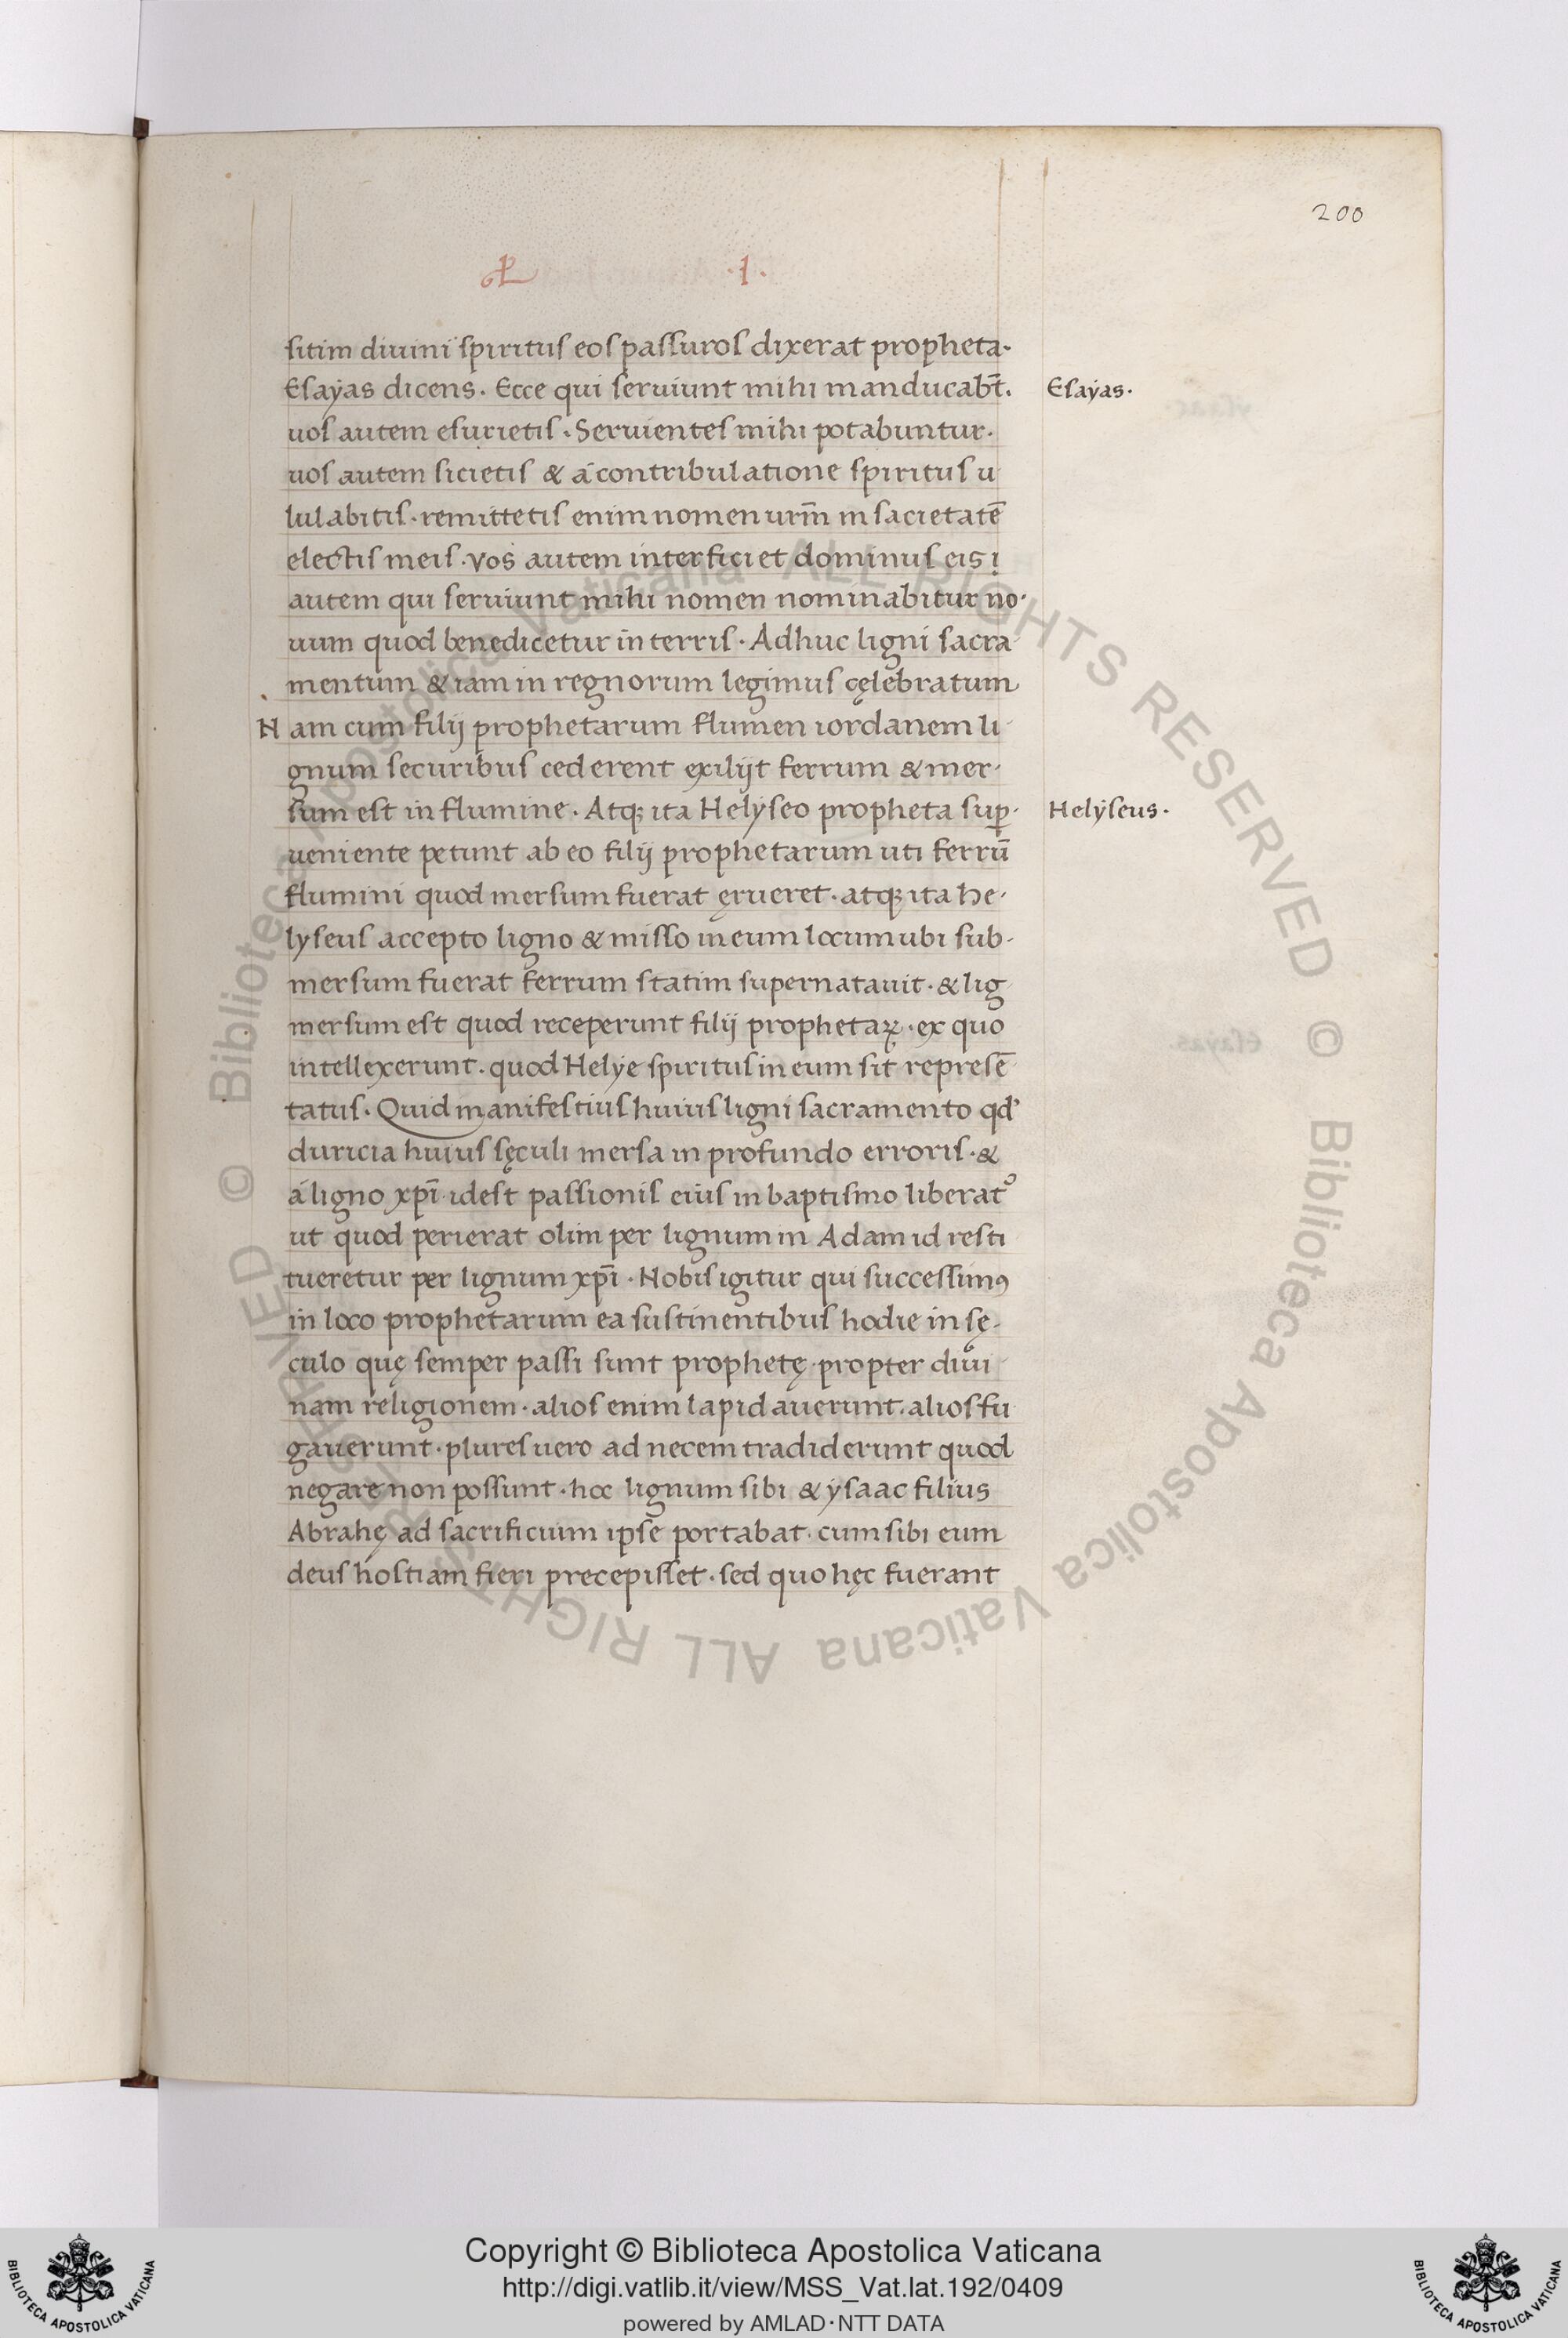 200
L .1.
sitim diuini spiritus eos passuros dixerat propheta.
Esayas dicens. Ecce qui seruiunt mihi manducabt̄.
Esayas.
uos autem esurietis. Seruientes mihi potabuntur.
uos autem sicietis & á contribulatione spiritus u
lulabitis. remittetis enim nomen urm̄ in sacietatē
electis meis. vos autem interficiet dominus eis
autem qui seruiunt mihi nomen nominabitur no-
uum quod benedicetur in terris. Adhuc ligni sacra
mentum & iam in regnorum legimus cęlebratum
Nam cum filij prophetarum flumen iordanem li-
gnum securibus cederent exilijt ferrum & mer-
sum est in flumine. Atq; ita Helyseo propheta sup̱-
Helyseus.
ueniente petunt ab eo filij prophetarum uti ferrū
flumini quod mersum fuerat ęrueret. atq; ita he-
lyseus accepto ligno & misso in eum locum ubi sub-
mersum fuerat ferrum statim supernatauit. & lig
mersum est quod receperunt filij prophetaꝝ. ex quo
intellexerunt. quod Helye spiritus in eum sit represē
tatus. Quid manifestius huius ligni sacramento qd'
duricia huius sęculi mersa in profundo erroris. &
á ligno xp̄i idest passionis eius in baptismo liberat᷒
ut quod perierat olim per lignum in Adam id resti
tueretur per lignum xp̄i. Nobis igitur qui successimꝰ
in loco prophetarum ea sustinentibus hodie in sę-
culo quę semper passi sunt prophetę propter diui
nam religionem. alios enim lapidauerunt. alios fu
gauerunt. plures uero ad necem tradiderunt quod
negare non possunt. hoc lignum sibi & ysaac filius
Abrahę ad sacrificium ipse portabat. cum sibi eum
deus hostiam fieri precepisset. sed quo hęc fuerant
© Biblioteca Apostolica Vaticana ALL RIGHTS RESERVED
© Biblioteca Apostolica Vaticana ALL RIGHTS RESERVED
Copyright © Biblioteca Apostolica Vaticana
http://digi.vatlib.it/view/MSS_Vat.lat.192/0409
powered by AMLAD·NTT DATA
BIBLIOTECA APOSTOLICA VATICANA
BIBLIOTECA APOSTOLICA VATICANA